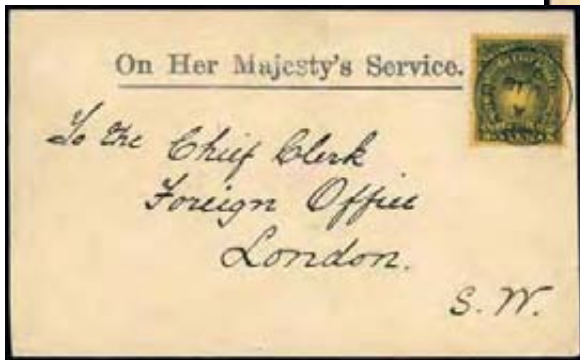 On Her Majesty's Service.
To the Chief Clerk
Foreign Office
London.
S. W.